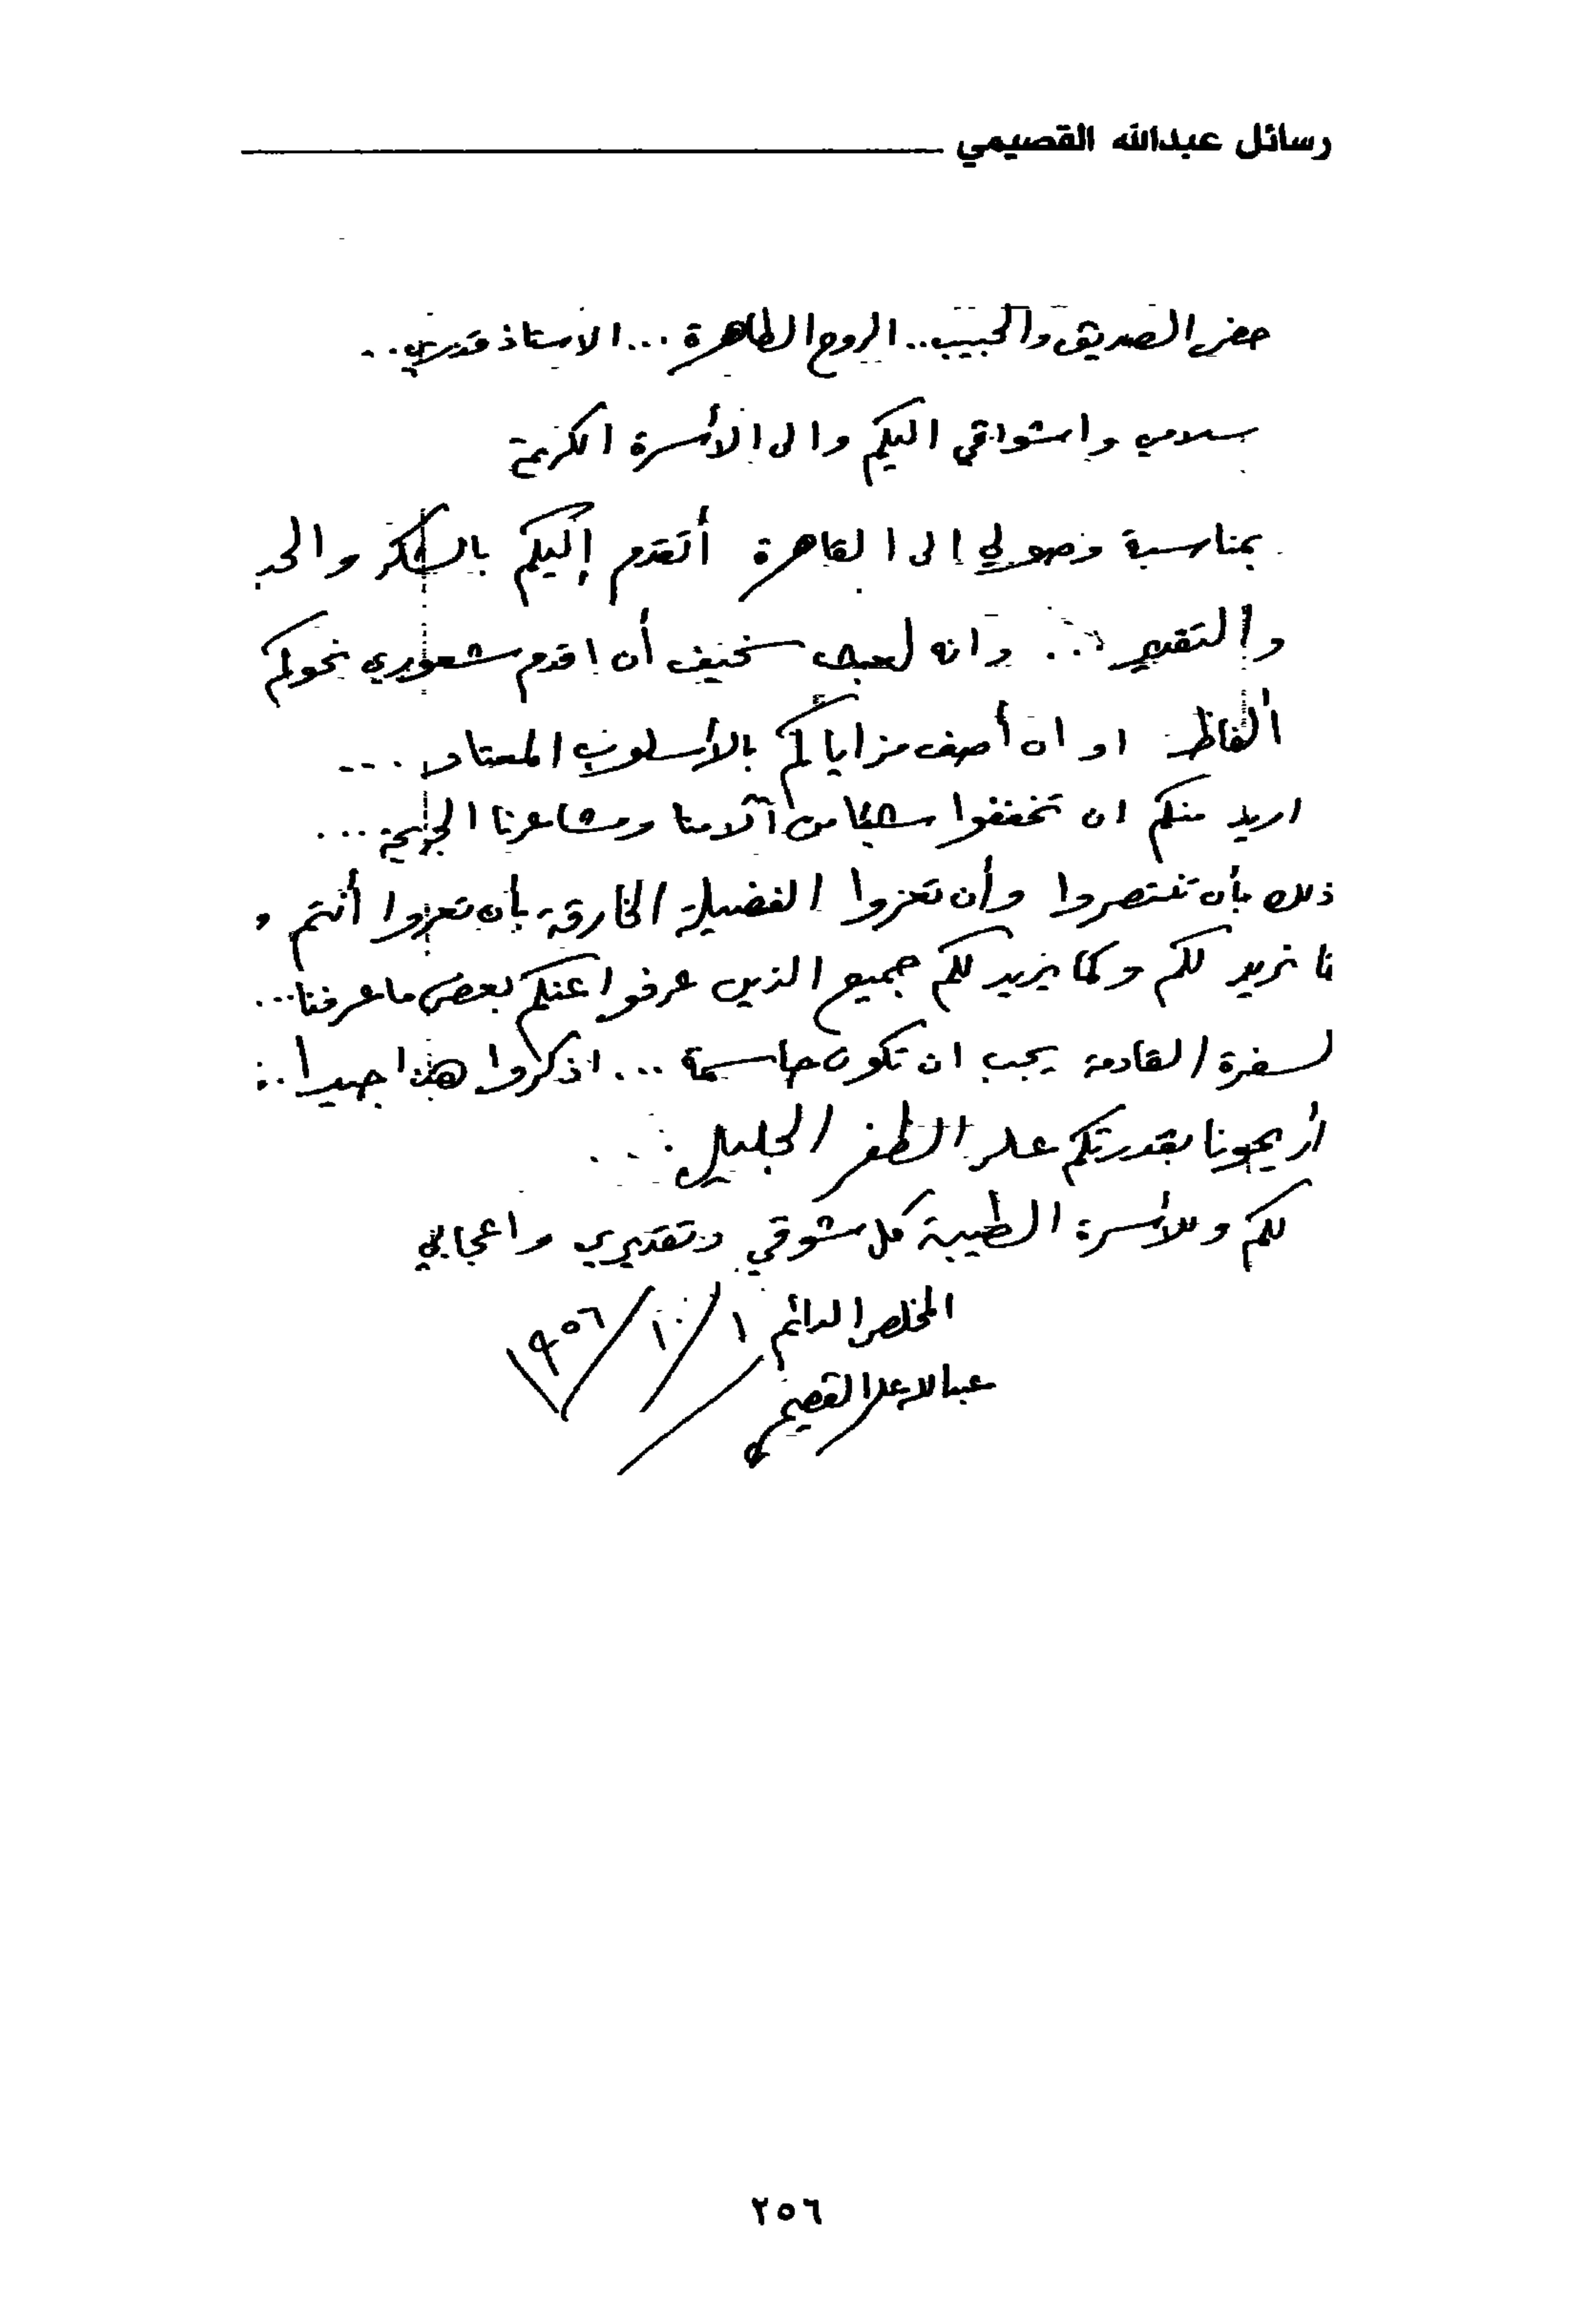 رسائل عبدالله القصيمي
حضر الصديق والحبيب.. الروح الطاهرة ... الاستاذ قدري..
سلامي واشواقي اليكم والى الأسرة الكريمة
بمناسبة وصولي الى القاهرة أتقدم إليكم بالشكر والحب
والتقدير ... وانه لعبث سخيف أن اقدم شعوري نحوكم
ألفاظ او ان أصف مزاياكم بالأسلوب المعتاد ...
اريد منكم ان تخففوا شيئا من آلامنا ومشاعرنا الجريحة ...
ذلك بأن تنتصروا وأن تعزوا الفضيلة الخارقة بأن تعزوا أنتم و
نا نريد لكم وكما يريد لكم جميع الذين عرفوا عنكم بعض ما عرفنا ...
لسفرة القادمة يجب ان تكون حاسمة ... اذكروا هذا جيدا ..
أريحونا بقدرتكم على الظفر الجليل ...
لكم وللأسرة الطيبة كل شوقي وتقديري واعجابي
المخلص الدائم ١/١٠/١٩٥٦
عبدالله علي القصيمي
٢٥٦